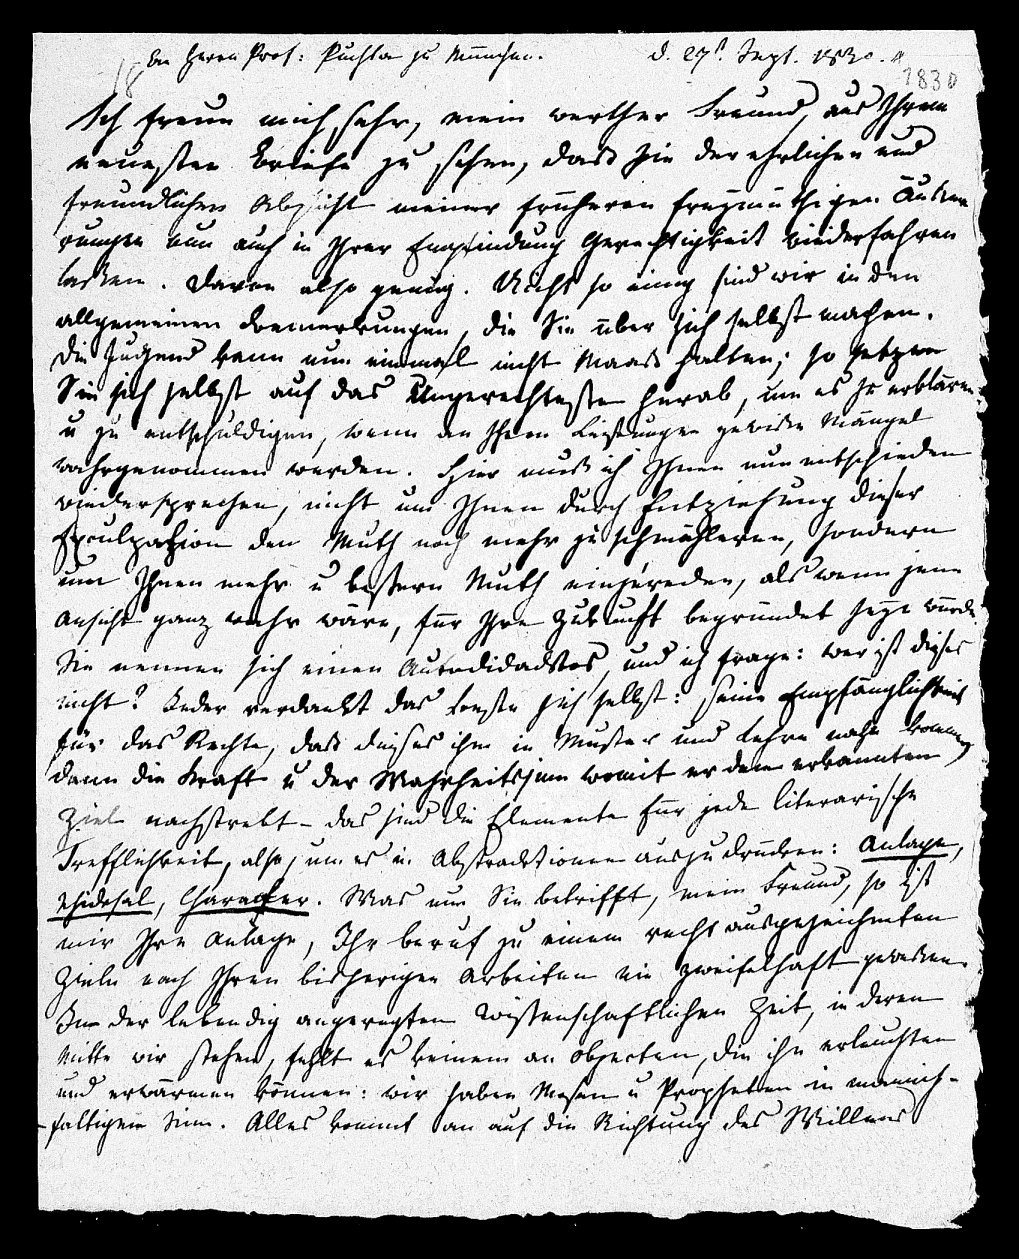 18
An Herrn Prof: Puchta zu München. d. 27t. Sept. 1830.
1830
Ich freue mich sehr, mein werther Freund, aus Ihrem
neuesten Briefe zu sehen, dass Sie der ehrlichen und
freundlichen Absicht meiner früheren freymüthigen Äusse-
rungen nun auch in Ihrer Empfindung Gerechtigkeit wiederfahren
lassen. Davon also genug. Nicht so einig sind wir in den
allgemeinen Bemerkungen, die Sie über sich selbst machen.
Die Jugend kann nun einmal nicht Maass halten; so setzen
Sie sich selbst auf das Ungerechteste herab, um es zu erklären
u zu entschuldigen, wenn an Ihren Leistungen gewisse Mängel
wahrgenommen werden. Hier muss ich Ihnen nun entschieden
wiedersprechen, nicht um Ihnen durch Entziehung dieser
Exculpation den Muth noch mehr zu schmälern, sondern
um Ihnen mehr u bessern Muth einzureden, als wenn jene
Ansicht ganz wahr wäre, für Ihre Zukunft begründet seyn würde.
Sie nennen sich einen Autodidactos, und ich frage: wer ist dieses
nicht? Jeder verdankt das Beste sich selbst: seine Empfänglichkeit
für das Rechte, dass dieses ihm in Muster und Lehre nahe komme,
dann die Kraft u der Wahrheitssinn womit er dem erkannten
Ziele nachstrebt – das sind die Elemente für jede literarische
Trefflichkeit, also, um es in Abstractionen auszudrücken: Anlage,
Schicksal, Character. Was nun Sie betrifft, mein Freund, so ist
mir Ihre Anlage, Ihr Beruf zu einem recht ausgezeichneten
Ziele nach Ihren bisherigen Arbeiten nie zweifelhaft gewesen.
In der lebendig angeregten wissenschaftlichen Zeit, in deren
Mitte wir stehen, fehlt es keinem an Objecten, die ihn erleuchten
und erwärmen können: wir haben Mosen u Propheten in mannich-
faltigem Sinn. Alles kommt an auf die Richtung des Willens